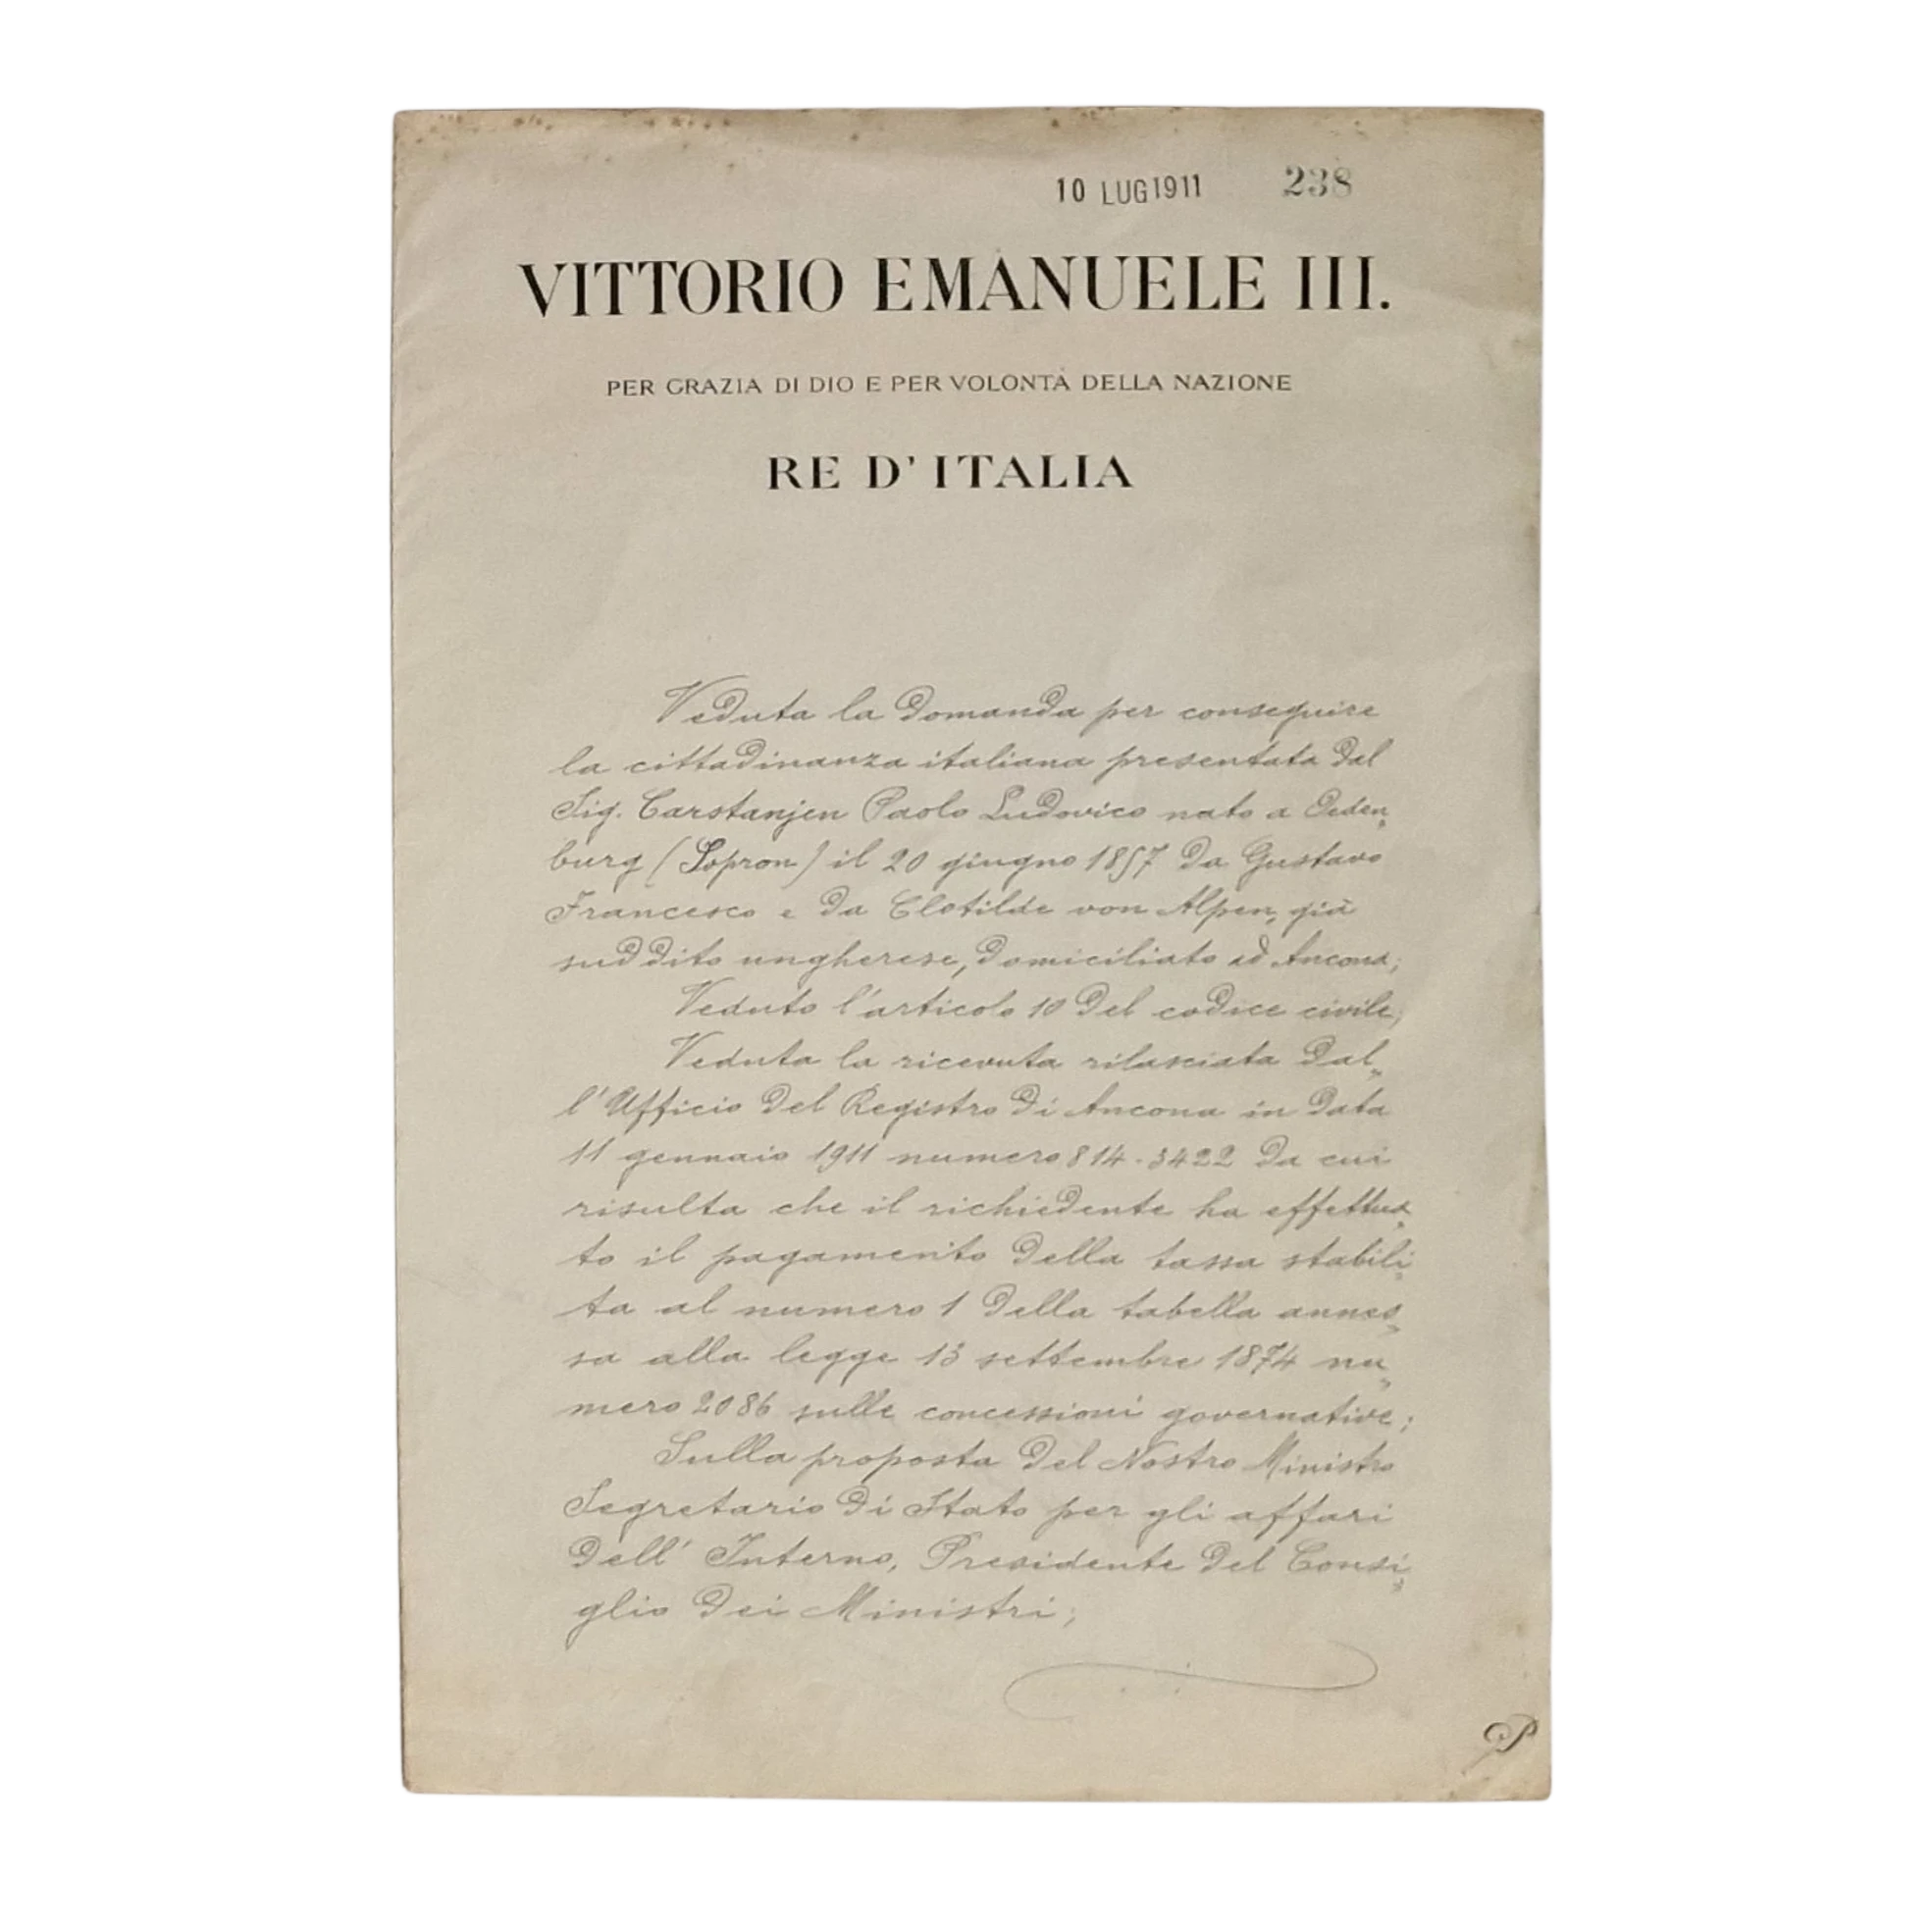 10 LUG 1911 238
VITTORIO EMANUELE III.
PER GRAZIA DI DIO E PER VOLONTÀ DELLA NAZIONE
RE D'ITALIA
Veduta la domanda per conseguire
la cittadinanza italiana presentata dal
Sig. Carstanjen Paolo Ludovico nato a Oeden„
burg (Sopron) il 20 giugno 1857 da Gustavo
Francesco e da Clotilde von Alpen, già
suddito ungherese, domiciliato ad Ancona;
Veduto l'articolo 10 del codice civile;
Veduta la ricevuta rilasciata dal„
l'Ufficio del Registro di Ancona in data
11 gennaio 1911 numero 814-3422 da cui
risulta che il richiedente ha effettua„
to il pagamento della tassa stabili„
ta al numero 1 della tabella annes„
sa alla legge 13 settembre 1874 nu„
mero 2086 sulle concessioni governative;
Sulla proposta del Nostro Ministro
Segretario di Stato per gli affari
dell'Interno, Presidente del Consi„
glio dei Ministri;